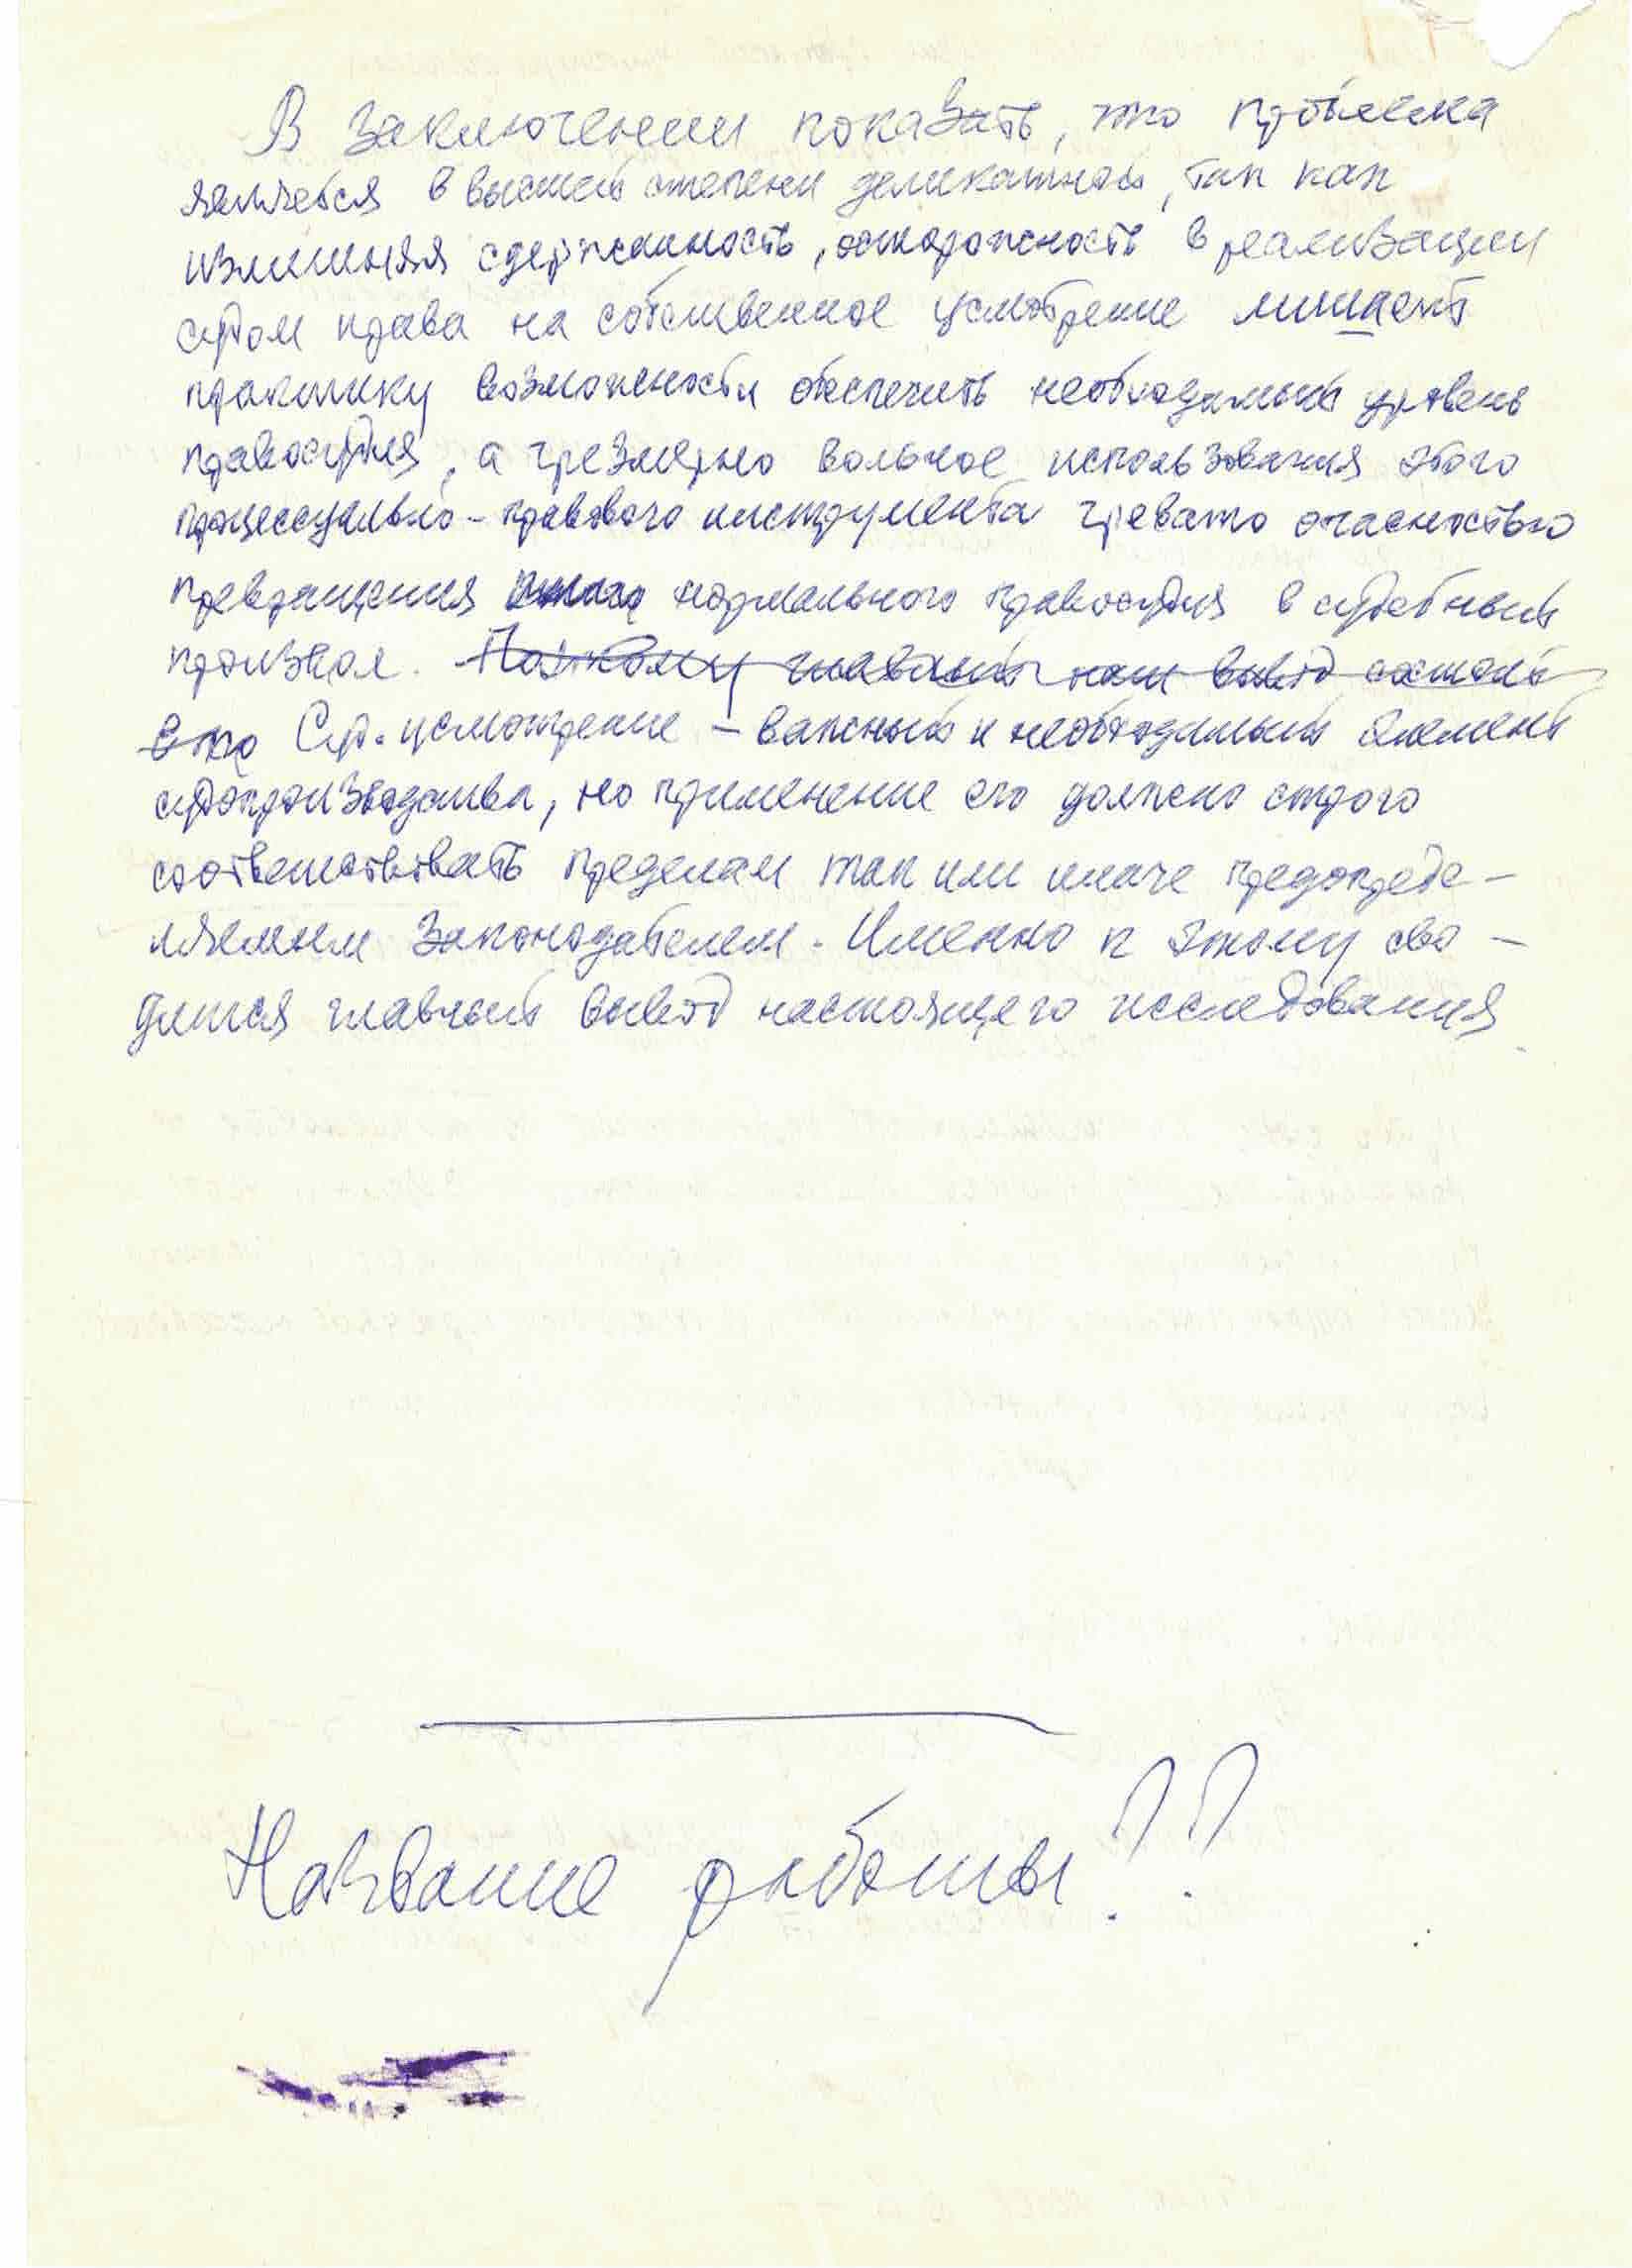 В заключении показать, что проблема
является в высшей степени деликатной, так как
излишняя сдержанность, осторожность в реализации
судом права на собственное усмотрение лишает
практику возможности обеспечить необходимый уровень
правосудия, а чрезмерно вольное использования этого
процессуально-правового инструмента чревато опасностью
превращения нормального правосудия в судебный
произвол. Поэтому главный наш вывод состоит
в то Суд. усмотрение – важный и необходимый элемент
судопроизводства, но применение его должно строго
соответствовать пределам так или иначе предопреде-
ляемым законодателем. Именно к этому сво-
дится главный вывод настоящего исследования
Название работы??